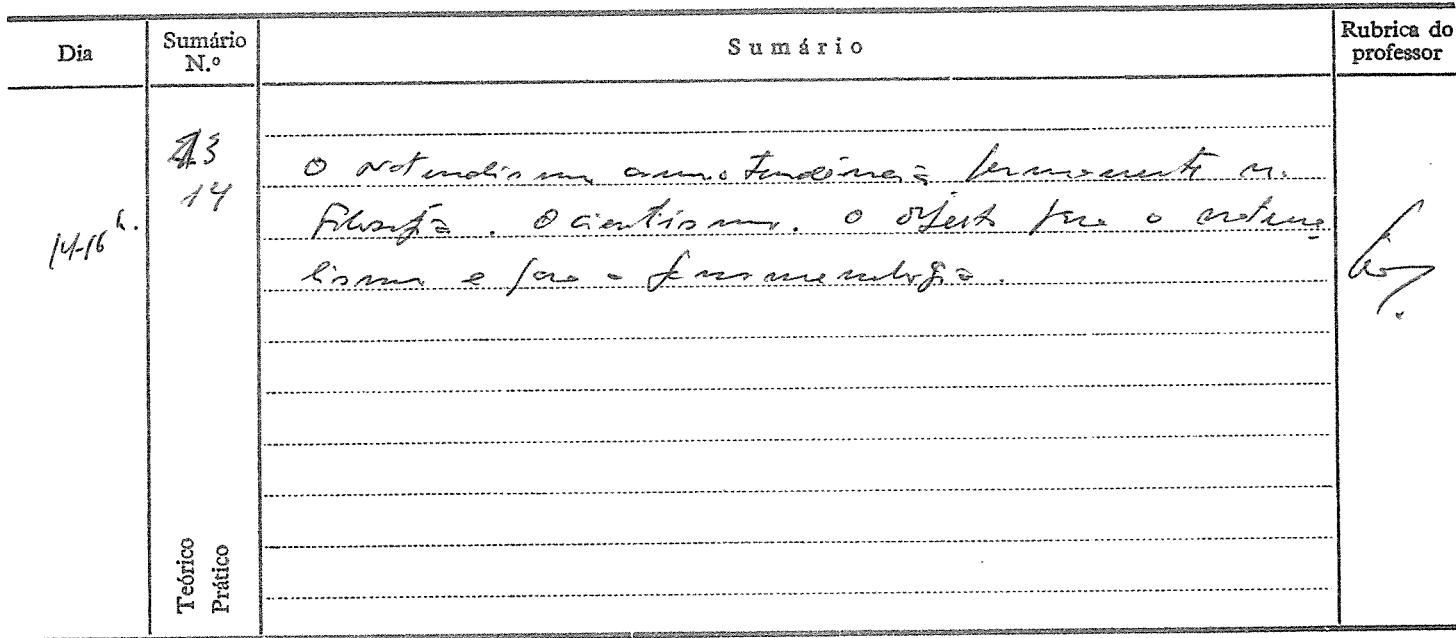 Dia
Sumário N.º
Sumário
Rubrica do professor
14-16 h.
13
14
O naturalismo como tendência permanente na
Filosofia. O cientismo. O objecto para o natura
lismo e para a fenomenologia.
Teórico
Prático